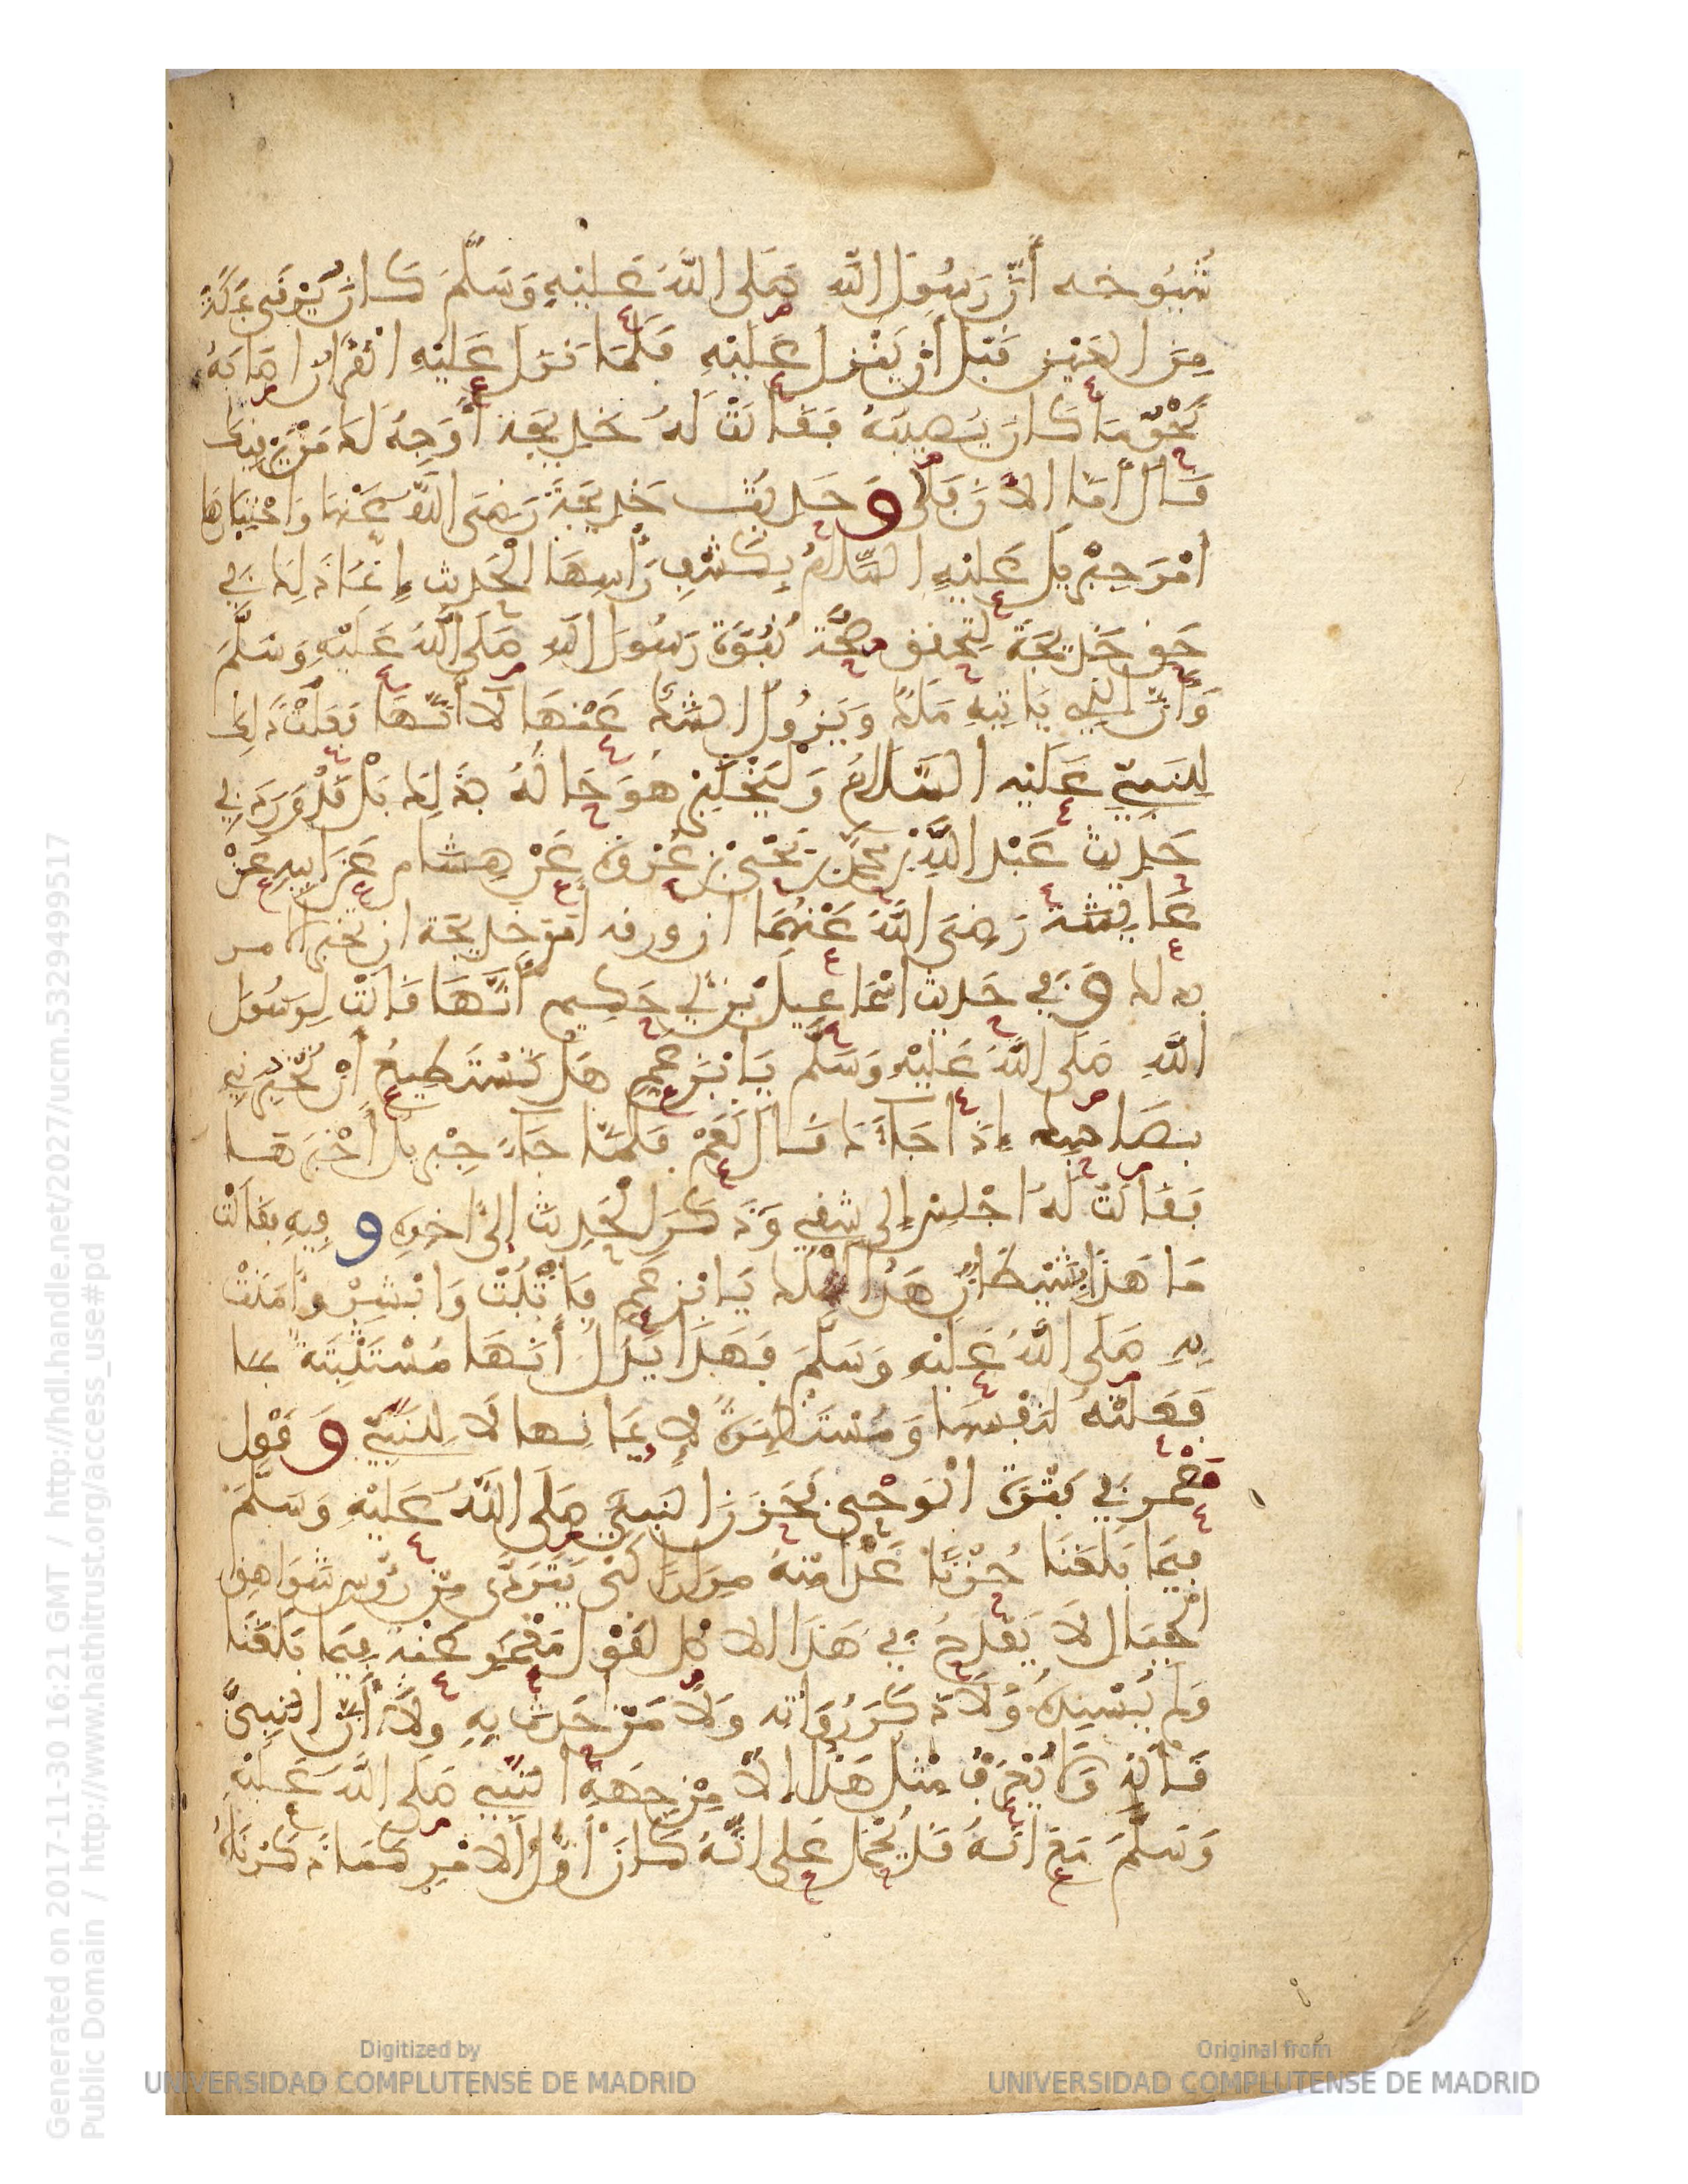 شُيُوخه أَنَّ رَسُولَ اللَّهِ صَلى اللَّهُ عَلَيْهِ وَسَلَّمَ كَانَ يُرْقَى بمَكَّةَ
مِنَ العَيْنِ قَبْلَ أَنْ يَنْزِلَ عَلَيْهِ فَلَمَّا نَزَلَ عَلَيْهِ القُرْآنُ اصَابَهُ
نَحْوُ مَا كَانَ يُصِيبُهُ فَقَالَتْ لَهُ خَدِيجَةُ أُوَجِّهُ لَكَ مَنْ يَرْقِيكَ
قَالَ أَمَّا الآنَ فَلَا وَحَدِيثُ خَدِيجَةَ رَضِيَ اللَّهُ عَنْهَا وَاخْتِبَارهَا
امْرَ جِبْرِيلَ عَلَيْهِ السَّلَامُ بِكَشْفِ رَأْسِهَا الْحَدِيث إِنَّمَا ذَلِكَ فِي
حَقِ خَدِيجَةَ لِتحقق صِحَّةَ نُبُوَّةِ رَسُولِ اللهِ صَلَى اللَّهُ عَلَيْهِ وَسَلَّمَ
وَأَنَّ الذِي يَاتِيهِ مَلَكٌ وَيَزُولُ الشَّكُّ عَنْهَا لَا أَنَّهَا فَعَلَتْ ذَلِكَ
لِلنَبِيِّ عَلَيْهِ السَّلَامُ وَلِيَخْتَبِرَ هُوَ حَالَهُ بِذَلِكَ بَلْ قَدْ وَرَدَ فِي
حَدِيثِ عَبْدِ اللَّهِ بْنِ مُحَمَّدِ بْنِ يَحْيَى بْنِ عُرْوَةَ عَنْ هِشَام عَنَ ابِيهِ عَنْ
عَايِشَةَ رَضِيَ اللَّهُ عَنْهُمَا ان ورقه امَرَ خَدِيجَةَ ان تُخْبِرَ الامر
بِذلك وَفِي حَدِيث اسْمَاعِيلَ بْنِ أَبِي حَكِيمٍ أَنَّهَا قَالَتْ لِرَسُولِ
اللَّهِ صَلَى اللَّهُ عَلَيْهِ وَسَلَّمَ يَا ابْنَ عَمِّ هَلْ تَسْتَطِيعُ أَنْ تُخْبِرَنِي
بِصَاحِبِكَ إِذَا جَاءَكَ قَالَ نَعَمْ فَلَمَّا جَاءَ جِبْرِيلُ أَخْبَرَهَا
فَقَالَتْ لَهُ اجْلِسْ إِلى شِقِي وَذَكَرَ الْحَدِيثَ إِلَى آخِرِهِ وفِيهِ فقَالَتْ
مَا هَذَا بِشَيْطَانٍ هَذَا الْمَلَكُ يَا ابْنَ عَمِّ فَاثْبُتْ وَابْشِرْ وَآمَنَتْ
بِهِ صَلَى اللهُ عَلَيْهِ وَسَلَّمَ فَهَذَا يَدُلُّ أَنَهَا مُسْتَثْبِتَةٌ بما
فَعَلَتْهُ لِنَفْسِهَا وَمُسْتَظْهِرَةٌ لِإِيمَانِهَا لَا لِلنَبِيِّ وَقَوْلُ
مَعْمَرٍ فِي فَتْرَةِ الْوَحْيِ فَحَزِنَ النَبِيُّ صَلَى اللَّهُ عَلَيْهِ وَسَلَّمَ
فِيمَا بَلَغَنَا حُزْنًا غَدَا مِنْهُ مِرَارًا كَيْ يَتَرَدَّى مِنْ رُءُوسِ شَوَاهِقِ
الْجِبَالِ لَا يَقْدَحُ فِي هَذَا الاصْلِ لِقَوْلِ مَعْمَرٍ عَنْهُ فِيمَا بَلَغَنَا
وَلَم يُسْنِدْهُ وَلَا ذَكَرَ رُوَاتَه وَلَا مَنْ حَدَّثَ بِهِ وَلَا أَنَّ النَبِيَّ
قَالَهُ وَلَا يُعْرَفُ مِثْلُ هَذَا إِلَّا مِنْ جِهَةِ النَبِيِّ صَلَى اللَّهُ عَلَيْهِ
وَسَلَّمَ مَعَ انَّهُ قَد يُحْمَلُ عَلَى انَّهُ كَانَ أَوَّلَ الامْرِ كَمَا ذَكَرْنَاهُ
Generated on 2017-11-30 16:21 GMT / http://hdl.handle.net/2027/ucm.5329499517
Public Domain / http://www.hathitrust.org/access_use#pd
Digitized by
UNIVERSIDAD COMPLUTENSE DE MADRID
Original from
UNIVERSIDAD COMPLUTENSE DE MADRID